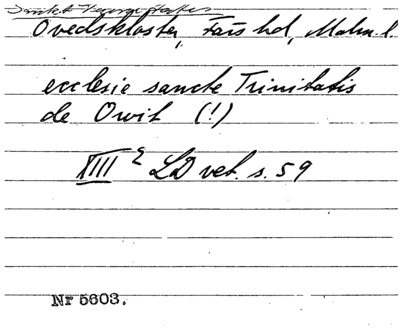 Ovedskloster, Färs hd, Malm. l.
ecclesie sancte Trinitatis
de Owit (!)
XIII 2 LD vet. s. 59
Nr 5603.